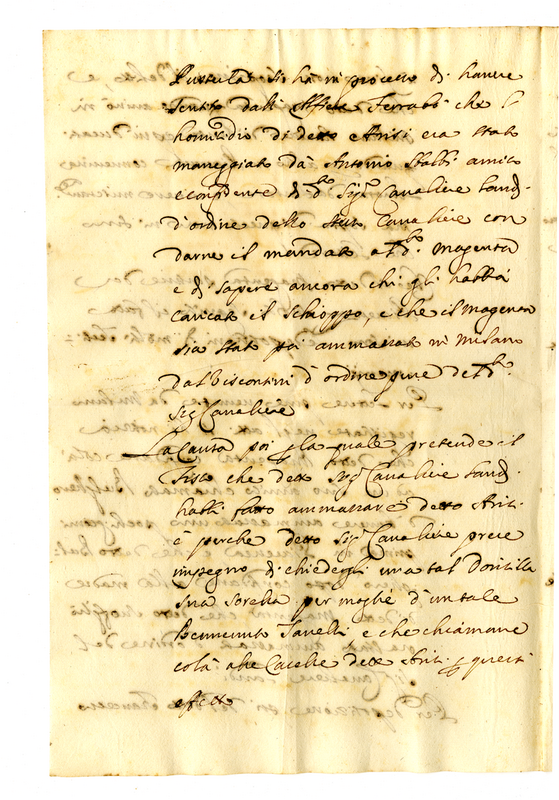 si hà in processo di havere
sentito dall' Alfiere Ferrabò che l'
homicidio di detto Ariti era stato
maneggiato dà Antonio amico
e confidente di d.to Sig.r Cavaliere Land.
d'ordine dello stesso Cavaliere con
darne il mandato à d.to Magenta
e di sapere ancora chi gli habbia
caricato il schioppo, e che il Magenta
sia stato poi ammazzato in Milano
dal Viscontini d'ordine pure de d.to
Sig.r Cavaliere
La Causa poi p la quale pretende il
Fisco che detto Sig.r Cavaliere Land.
habbi fatto ammazzare detto Ariti
è perche detto Sig.r Cavaliere prese
impegno di chiedegli una tal Doritilla
sua sorella per moglie d'un tale
Benvenuto e che chiamane
colà alle Caselle detto Ariti p questi
effetto